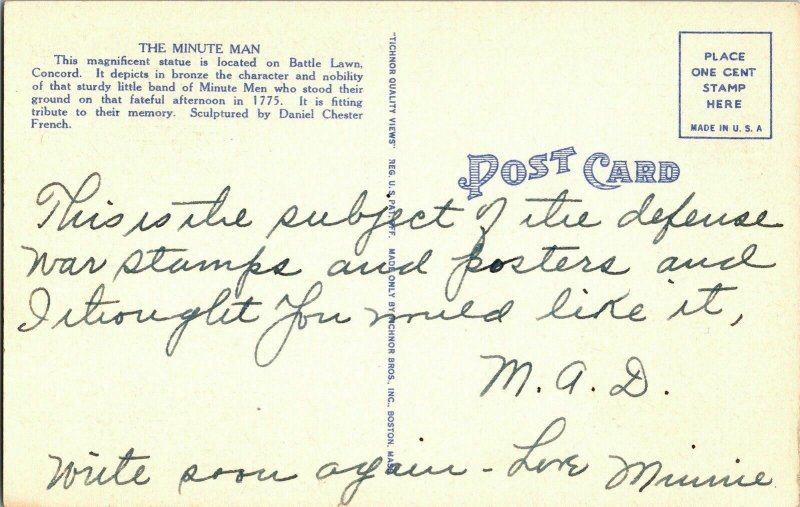 THE MINUTE MAN
This magnificent statue is located on Battle Lawn,
Concord. It depicts in bronze the character and nobility
of that sturdy little band of Minute Men who stood their
ground on that fateful afternoon in 1775. It is fitting
tribute to their memory. Sculptured by Daniel Chester
French.
"TICHNOR QUALITY VIEWS" REG. U. S. PAT. OFF. MADE ONLY BY TICHNOR BROS., INC., BOSTON, MASS.
PLACE
ONE CENT
STAMP
HERE
MADE IN U. S. A
POST CARD
This is the subject of the defense
war stamps and posters and
I thought you would like it,
M. A. D.
Write soon again - Love Minnie